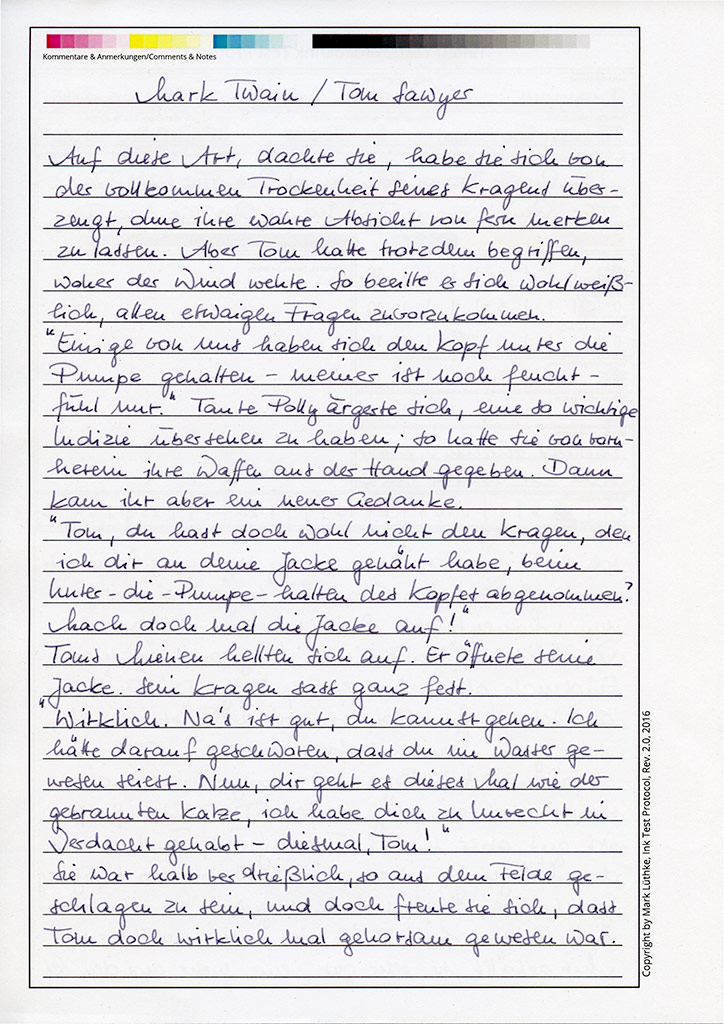 Kommentare & Anmerkungen/Comments & Notes
Mark Twain / Tom Sawyer
Auf diese Art, dachte sie, habe sie sich von
der vollkommen Trockenheit seines Kragens über-
zeugt, ohne ihre wahre Absicht von fern merken
zu lassen. Aber Tom hatte trotzdem begriffen,
woher der Wind wehte. So beeilte er sich wohlweiß-
lich, allen etwaigen Fragen zuvorzukommen.
"Einige von uns haben sich den Kopf unter die
Pumpe gehalten - meiner ist noch feucht -
fühl nur." Tante Polly ärgerte sich, eine so wichtige
Indizie übersehen zu haben; so hatte sie von vorn-
herein ihre Waffen aus der Hand gegeben. Dann
kam ihr aber ein neuer Gedanke.
"Tom, du hast doch wohl nicht den Kragen, den
ich dir an deine Jacke genäht habe, beim
Unter-die-Pumpe-halten des Kopfes abgenommen?
Mach doch mal die Jacke auf!"
Toms Mienen hellten sich auf. Er öffnete seine
Jacke. Sein Kragen sass ganz fest.
"Wirklich. Na's ist gut, du kannst gehen. Ich
hätte darauf geschworen, dass du im Wasser ge-
wesen seiest. Nun, dir geht es dieses Mal wie der
gebrannten Katze, ich habe dich zu Unrecht in
Verdacht gehabt - diesmal, Tom!"
Sie war halb verdrießlich, so aus dem Felde ge-
schlagen zu sein, und doch freute sie sich, dass
Tom doch wirklich mal gehorsam gewesen war.
Copyright by Mark Lüthke, Ink Test Protocol, Rev. 2.0, 2016